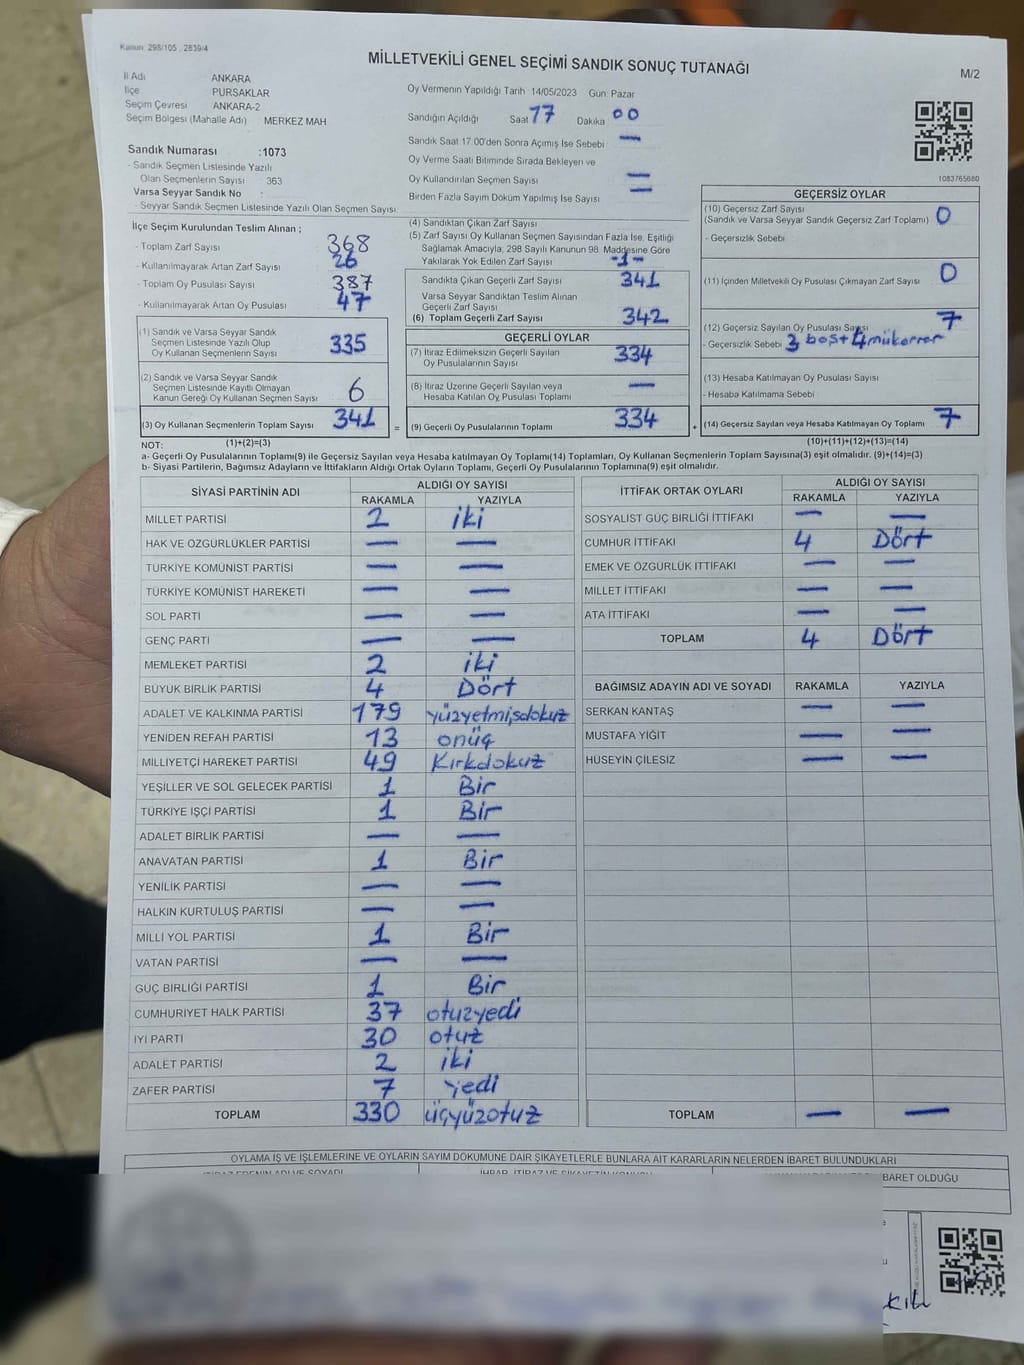 Kanun: 298/105, 2839/4
MİLLETVEKİLİ GENEL SEÇİMİ SANDIK SONUÇ TUTANAĞI
M/2
İl Adı ANKARA
İlçe PURSAKLAR
Seçim Çevresi ANKARA-2
Seçim Bölgesi (Mahalle Adı) MERKEZ MAH
Oy Vermenin Yapıldığı Tarih 14/05/2023 Gün: Pazar
Sandığın Açıldığı Saat 17 Dakika 00
Sandık Saat 17:00'den Sonra Açılmış İse Sebebi —
Oy Verme Saati Bitiminde Sırada Bekleyen ve
Oy Kullandırılan Seçmen Sayısı —
Birden Fazla Sayım Döküm Yapılmış İse Sayısı —
Sandık Numarası :1073
- Sandık Seçmen Listesinde Yazılı
Olan Seçmenlerin Sayısı : 363
Varsa Seyyar Sandık No :
- Seyyar Sandık Seçmen Listesinde Yazılı Olan Seçmen Sayısı
1083765680
İlçe Seçim Kurulundan Teslim Alınan ;
- Toplam Zarf Sayısı 368
- Kullanılmayarak Artan Zarf Sayısı 26
- Toplam Oy Pusulası Sayısı 387
- Kullanılmayarak Artan Oy Pusulası 47
(1) Sandık ve Varsa Seyyar Sandık
Seçmen Listesinde Yazılı Olup
Oy Kullanan Seçmenlerin Sayısı 335
(2) Sandık ve Varsa Seyyar Sandık
Seçmen Listesinde Kayıtlı Olmayan
Kanun Gereği Oy Kullanan Seçmen Sayısı 6
(3) Oy Kullanan Seçmenlerin Toplam Sayısı 341
(1)+(2)=(3)
(4) Sandıktan Çıkan Zarf Sayısı
(5) Zarf Sayısı Oy Kullanan Seçmen Sayısından Fazla İse, Eşitliği
Sağlamak Amacıyla, 298 Sayılı Kanunun 98. Maddesine Göre
Yakılarak Yok Edilen Zarf Sayısı -1-
Sandıkta Çıkan Geçerli Zarf Sayısı 341
Varsa Seyyar Sandıktan Teslim Alınan
Geçerli Zarf Sayısı
(6) Toplam Geçerli Zarf Sayısı 342
GEÇERLİ OYLAR
(7) İtiraz Edilmeksizin Geçerli Sayılan
Oy Pusulalarının Sayısı 334
(8) İtiraz Üzerine Geçerli Sayılan veya
Hesaba Katılan Oy Pusulası Toplamı —
= (9) Geçerli Oy Pusulalarının Toplamı 334 +
GEÇERSİZ OYLAR
(10) Geçersiz Zarf Sayısı 0
(Sandık ve Varsa Seyyar Sandık Geçersiz Zarf Toplamı)
- Geçersizlik Sebebi
(11) İçinden Milletvekili Oy Pusulası Çıkmayan Zarf Sayısı 0
(12) Geçersiz Sayılan Oy Pusulası Sayısı 7
- Geçersizlik Sebebi 3 boş+4 mükerrer
(13) Hesaba Katılmayan Oy Pusulası Sayısı
- Hesaba Katılmama Sebebi
(14) Geçersiz Sayılan veya Hesaba Katılmayan Oy Toplamı 7
(10)+(11)+(12)+(13)=(14)
NOT:
a- Geçerli Oy Pusulalarının Toplamı(9) ile Geçersiz Sayılan veya Hesaba katılmayan Oy Toplamı(14) Toplamları, Oy Kullanan Seçmenlerin Toplam Sayısına(3) eşit olmalıdır. (9)+(14)=(3)
b- Siyasi Partilerin, Bağımsız Adayların ve İttifakların Aldığı Ortak Oyların Toplamı, Geçerli Oy Pusulalarının Toplamına(9) eşit olmalıdır.
SİYASİ PARTİNİN ADI ALDIĞI OY SAYISI
RAKAMLA YAZIYLA
MİLLET PARTİSİ 2 iki
HAK VE ÖZGÜRLÜKLER PARTİSİ — —
TÜRKİYE KOMÜNİST PARTİSİ — —
TÜRKİYE KOMÜNİST HAREKETİ — —
SOL PARTİ — —
GENÇ PARTİ — —
MEMLEKET PARTİSİ 2 iki
BÜYÜK BİRLİK PARTİSİ 4 Dört
ADALET VE KALKINMA PARTİSİ 179 yüzyetmişdokuz
YENİDEN REFAH PARTİSİ 13 onüç
MİLLİYETÇİ HAREKET PARTİSİ 49 Kırkdokuz
YEŞİLLER VE SOL GELECEK PARTİSİ 1 Bir
TÜRKİYE İŞÇİ PARTİSİ 1 Bir
ADALET BİRLİK PARTİSİ — —
ANAVATAN PARTİSİ 1 Bir
YENİLİK PARTİSİ — —
HALKIN KURTULUŞ PARTİSİ — —
MİLLİ YOL PARTİSİ 1 Bir
VATAN PARTİSİ — —
GÜÇ BİRLİĞİ PARTİSİ 1 Bir
CUMHURİYET HALK PARTİSİ 37 otuzyedi
İYİ PARTİ 30 otuz
ADALET PARTİSİ 2 iki
ZAFER PARTİSİ 7 yedi
TOPLAM 330 üçyüzotuz
İTTİFAK ORTAK OYLARI ALDIĞI OY SAYISI
RAKAMLA YAZIYLA
SOSYALİST GÜÇ BİRLİĞİ İTTİFAKI — —
CUMHUR İTTİFAKI 4 Dört
EMEK VE ÖZGÜRLÜK İTTİFAKI — —
MİLLET İTTİFAKI — —
ATA İTTİFAKI — —
TOPLAM 4 Dört
BAĞIMSIZ ADAYIN ADI VE SOYADI RAKAMLA YAZIYLA
SERKAN KANTAŞ — —
MUSTAFA YİĞİT — —
HÜSEYİN ÇİLESİZ — —
TOPLAM — —
OYLAMA İŞ VE İŞLEMLERİNE VE OYLARIN SAYIM DÖKÜMÜNE DAİR ŞİKAYETLERLE BUNLARA AİT KARARLARIN NELERDEN İBARET BULUNDUKLARI
İTİRAZ EDENİN ADI VE SOYADI
İHBAR, İTİRAZ VE ŞİKAYETİN KONUSU
BARET OLDUĞU